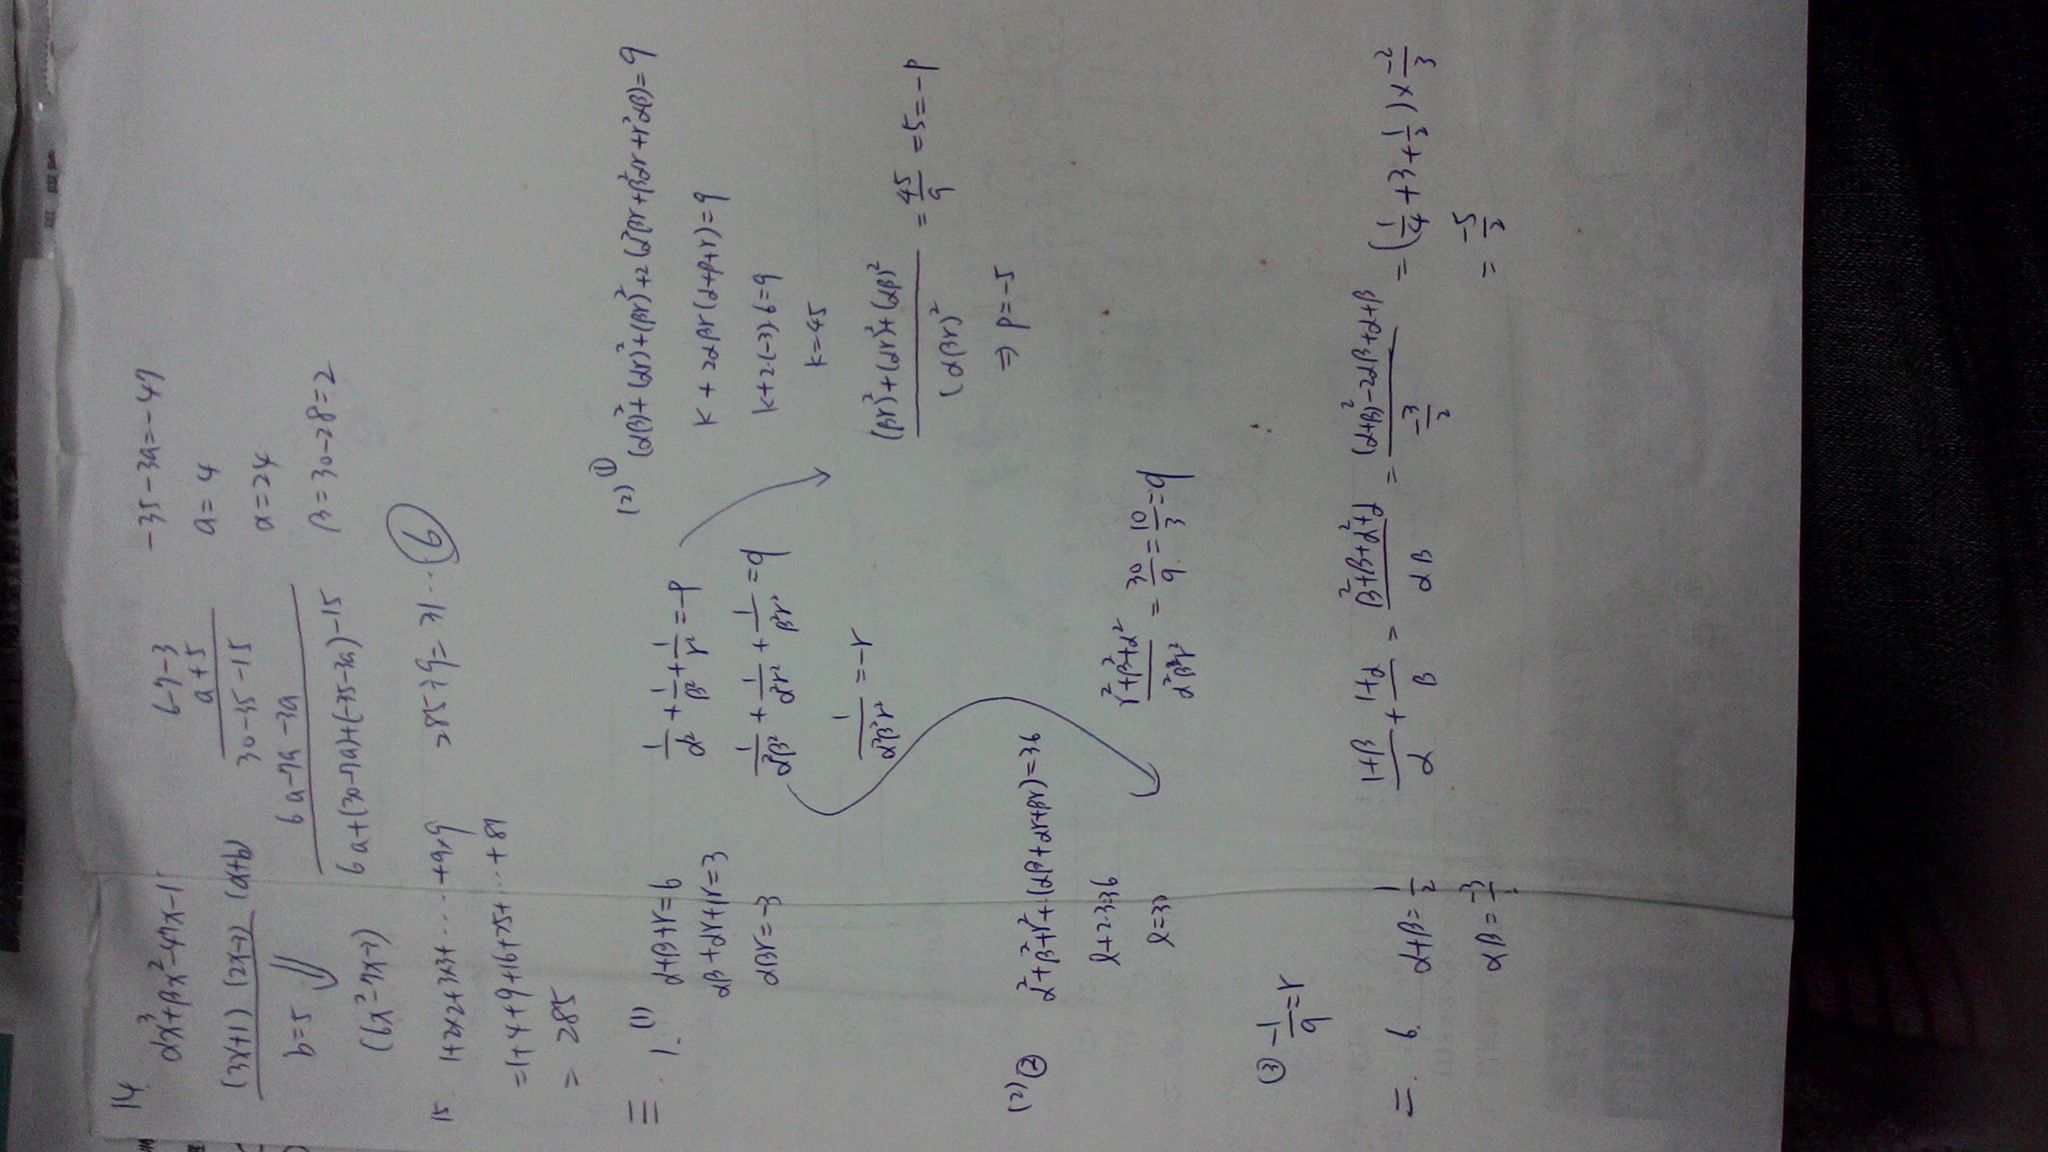 14
αx³+βx²-47x-15
(3x+1)(2x-3)(ax+b)
b=5
(6x²-7x-3)
6-7-3
a+5
30-35-15
6a-7a-3a
6a+(30-7a)+(-35-3a)-15
-35-3a=-47
a=4
α=24
β=30-28=2
15. 1+2×2+3×3+····+9×9
=1+4+9+16+25+···+81
= 285
285÷9=31···⑥
三. 1. (1) α+β+r=6
αβ+αr+βr=3
αβr=-3
1/α²+1/β²+1/r²=-p
1/α²β²+1/α²r²+1/β²r²=q
1/α²β²r²=-r
(2) ① (αβ)²+(αr)²+(βr)²+2(α²βr+β²αr+r²αβ)=9
k+2αβr(α+β+r)=9
k+2·(-3)·6=9
k=45
((βr)²+(αr)²+(αβ)²)/(αβr)²=45/9=5=-p
⇒ p=-5
(2) ② α²+β²+r²+2(αβ+αr+βr)=36
l+2·3=36
l=30
(r²+β²+α²)/α²β²r²=30/9=10/3=q
③ -1/9=r
二. 6. α+β=1/2
αβ=-3/2
(1+β)/α+(1+α)/β=(β²+β+α²+α)/αβ=((α+β)²-2αβ+α+β)/(-3/2)=(1/4+3+1/2)×-2/3
=-5/2